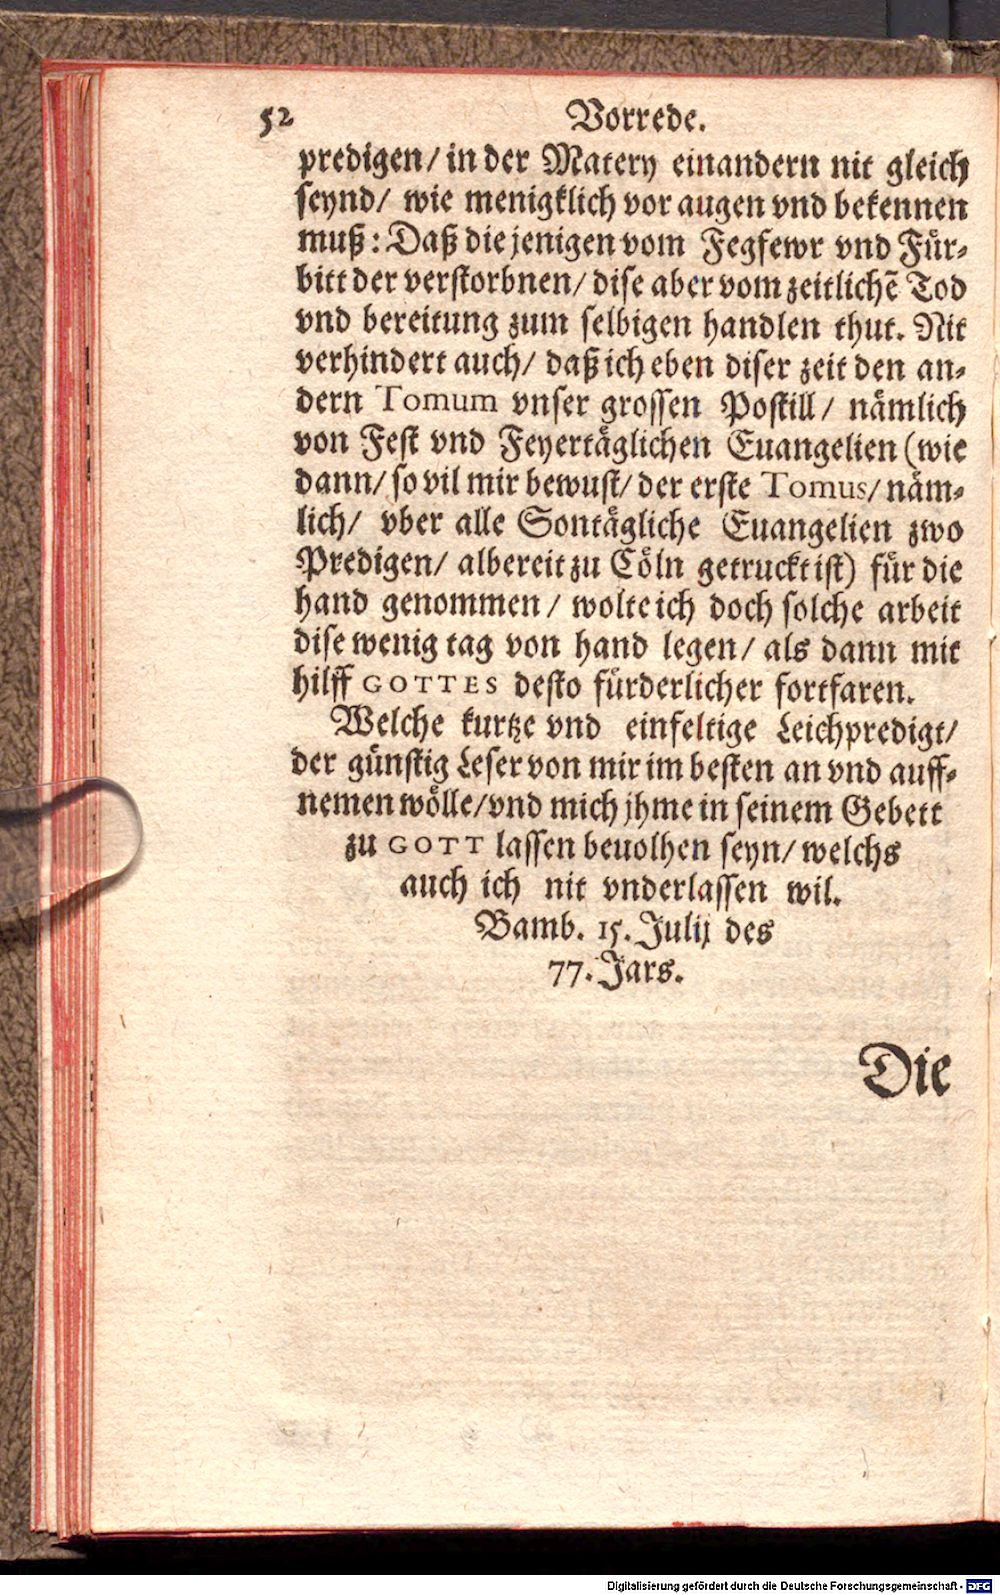 52 Vorrede.
predigen/ in der Matery einandern nit gleich
seynd/ wie menigklich vor augen vnd bekennen
muß: Daß die jenigen vom Fegfewr vnd Für-
bitt der verstorbnen/ dise aber vom zeitlichẽ Tod
vnd bereitung zum selbigen handlen thut. Nit
verhindert auch/ daß ich eben diser zeit den an-
dern Tomum vnser grossen Postill/ nämlich
von Fest vnd Feyertäglichen Euangelien (wie
dann/ so vil mir bewust/ der erste Tomus/ näm-
lich/ vber alle Sontägliche Euangelien zwo
Predigen/ albereit zu Cöln getruckt ist) für die
hand genommen/ wolte ich doch solche arbeit
dise wenig tag von hand legen/ als dann mit
hilff GOTTES desto fürderlicher fortfaren.
Welche kurtze vnd einfeltige Leichpredigt/
der günstig Leser von mir im besten an vnd auff-
nemen wölle/ vnd mich jhme in seinem Gebett
zu GOTT lassen beuolhen seyn/ welchs
auch ich nit vnderlassen wil.
Bamb. 15. Julij des
77. Jars.
Die
Digitalisierung gefördert durch die Deutsche Forschungsgemeinschaft - DFG